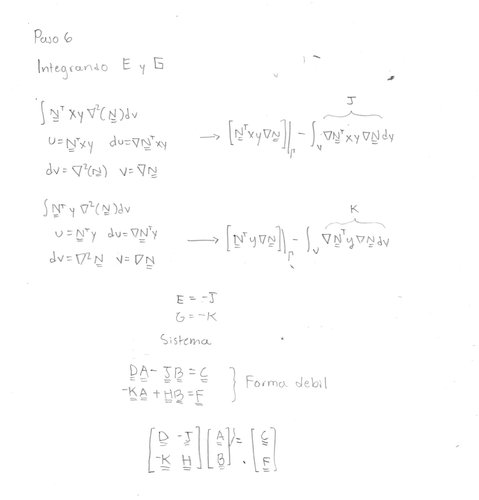 Paso 6
Integrando E y G
∫ N̳ᵀ xy ∇²(N̳) dv
u = N̳ᵀxy du = ∇N̳ᵀxy → [N̳ᵀxy∇N̳]|Γ − ∫ᵥ ∇N̳ᵀxy∇N̳dv
J
dv = ∇²(N̳) v = ∇N̳
∫ N̳ᵀ y ∇²(N̳) dv
u = N̳ᵀy du = ∇N̳ᵀy
K
dv = ∇²N̳ v = ∇N̳ → [N̳ᵀy∇N̳]|Γ − ∫ᵥ ∇N̳ᵀy∇N̳dv
E = -J
G = -K
Sistema
D̳A̳ - J̳B̳ = C̳
-K̳A̳ + H̳B̳ = F̳ } Forma debil
[D̳ -J̳] [A̳] = [C̳]
[-K̳ H̳] [B̳] [F̳]